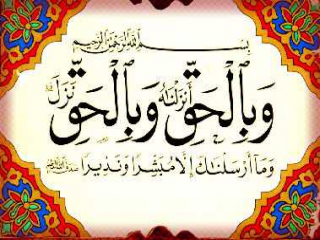 بِسْمِ اللَّهِ الرَّحْمَٰنِ الرَّحِيمِ
وَبِالْحَقِّ أَنزَلْنَاهُ وَبِالْحَقِّ نَزَلَ
وَمَا أَرْسَلْنَاكَ إِلَّا مُبَشِّرًا وَنَذِيرًا